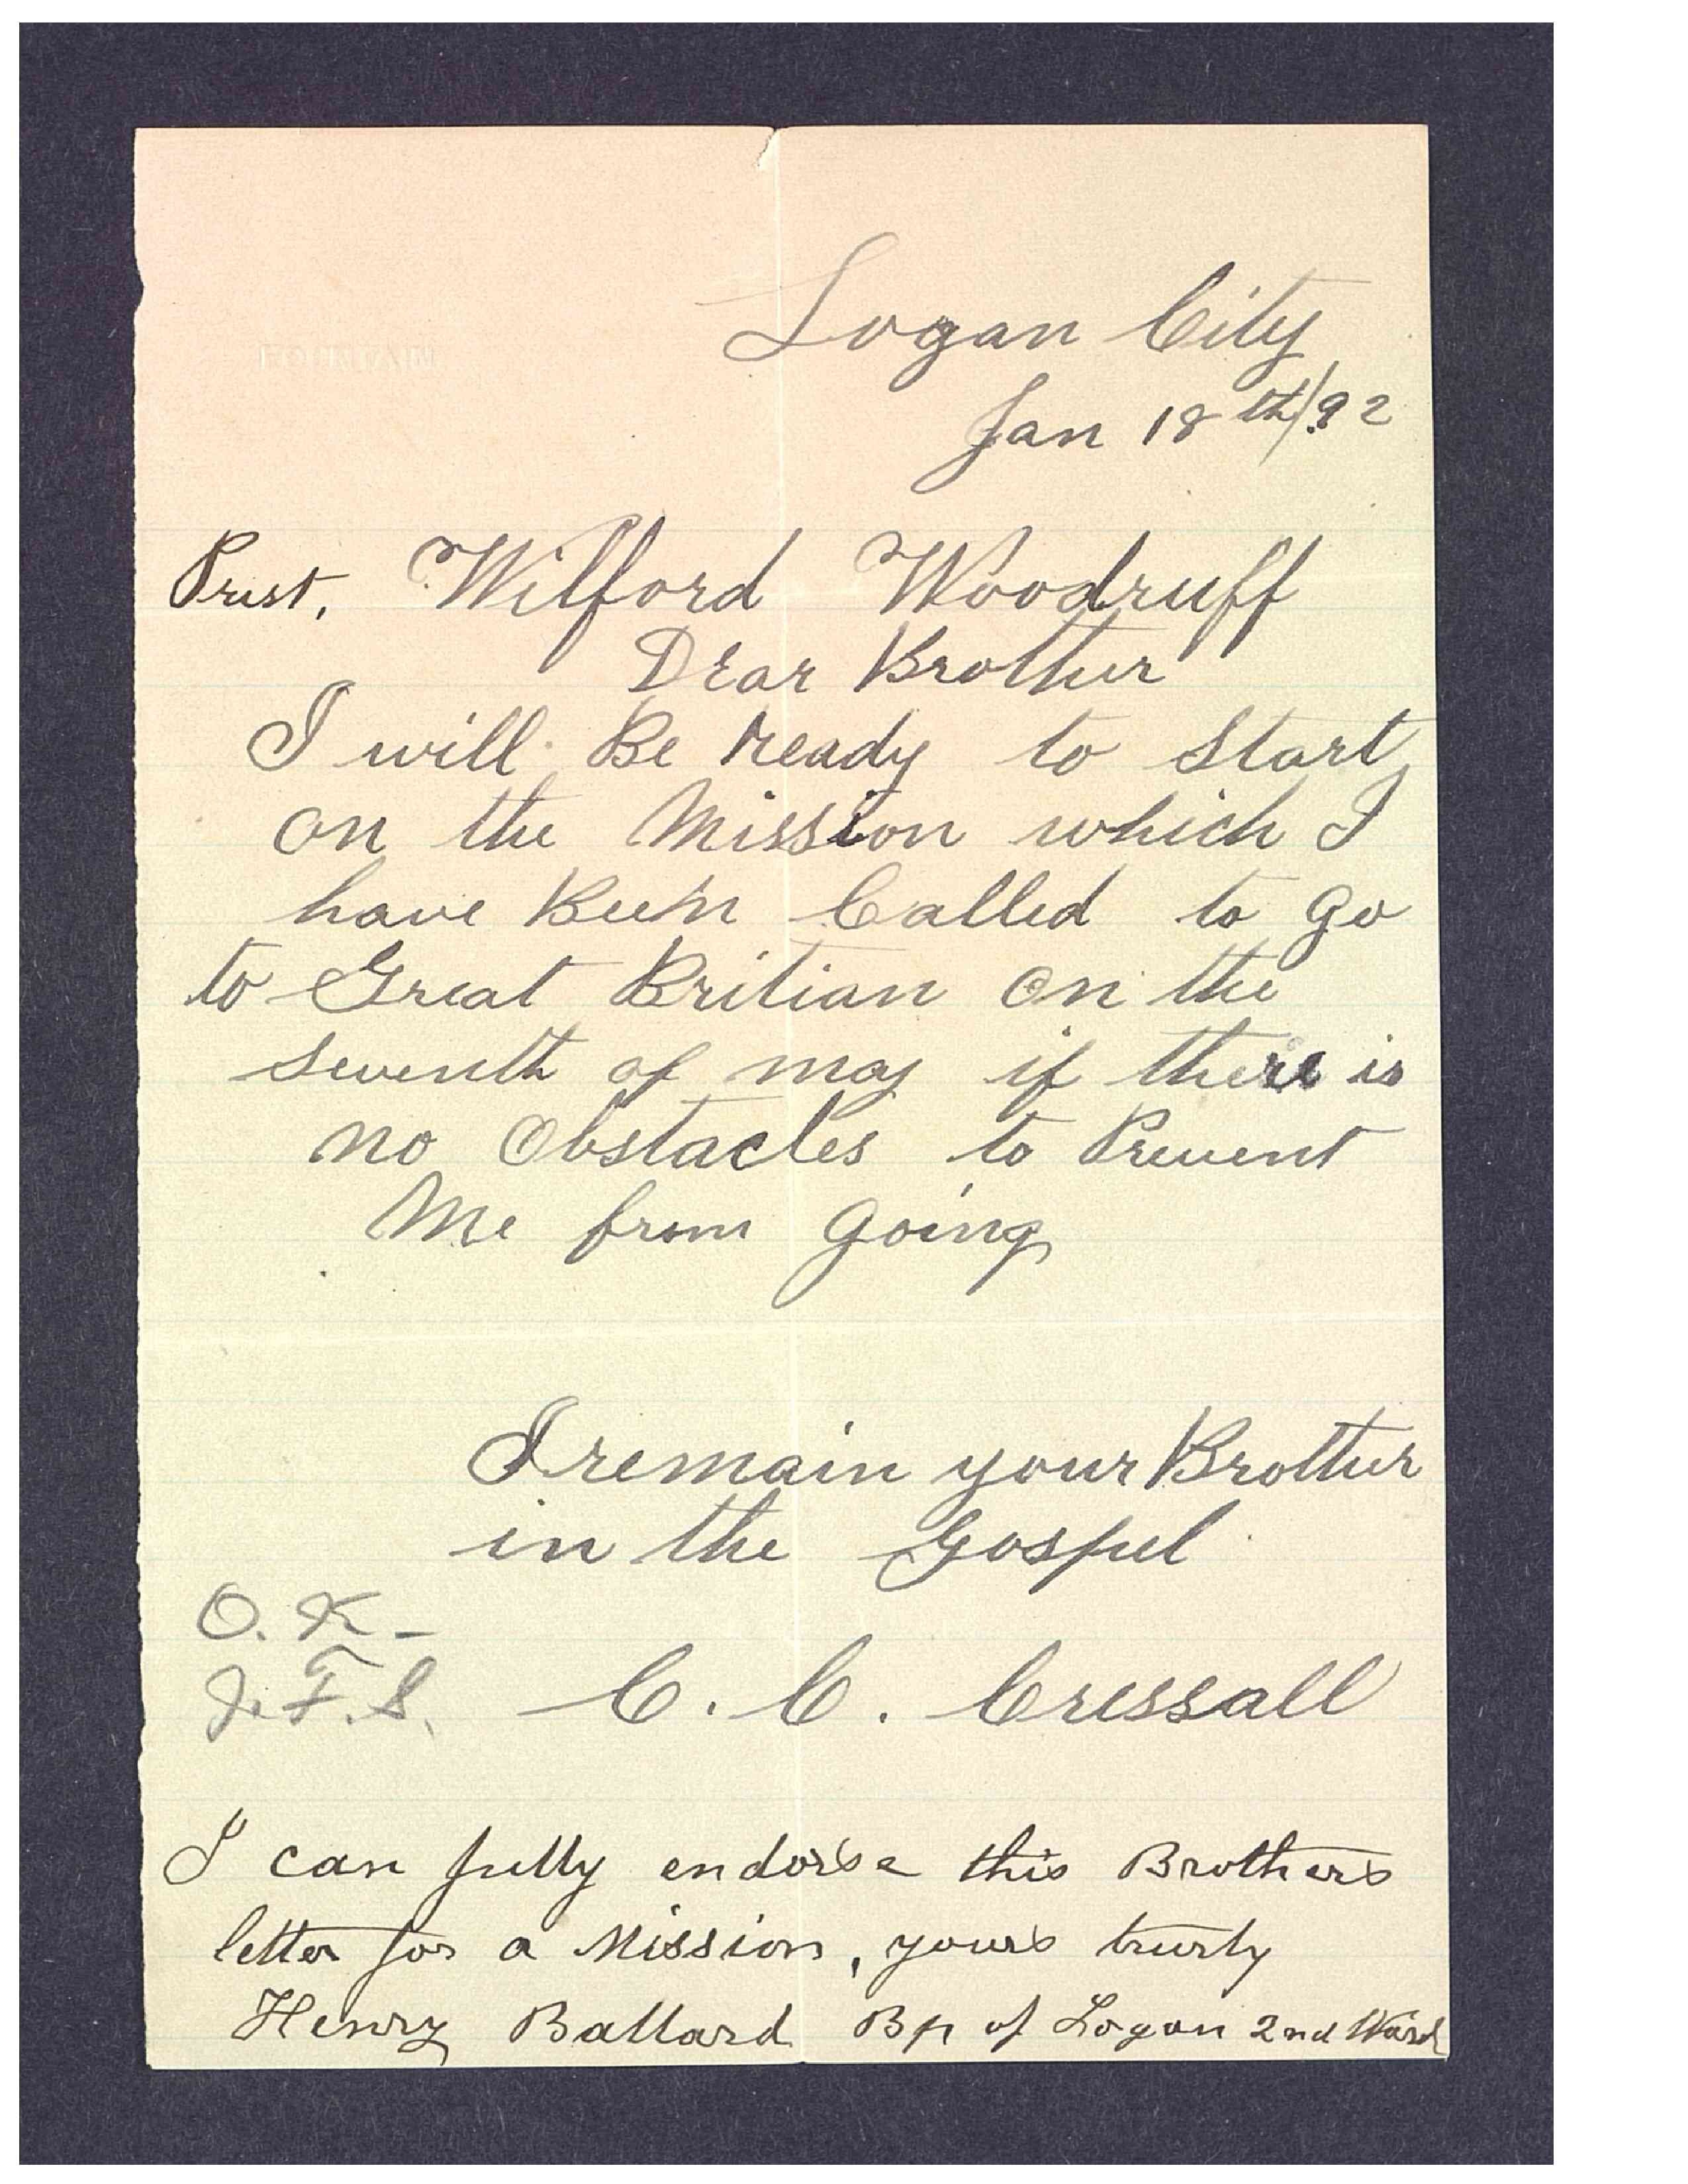 Logan City
Jan 18th/92
Prest, Wilford Woodruff
Dear Brother
I will Be ready to Start
on the Mission which I
have Been Called to go
to Great Britian on the
seventh of may if there is
no Obstacles to Prevent
Me from going
I remain your Brother
in the Gospel
O.K—
J.F.S.
C. C. Cressall
I can fully endorse this Brothers
letter for a Mission, yours truly
Henry Ballard Bp of Logan 2nd Ward